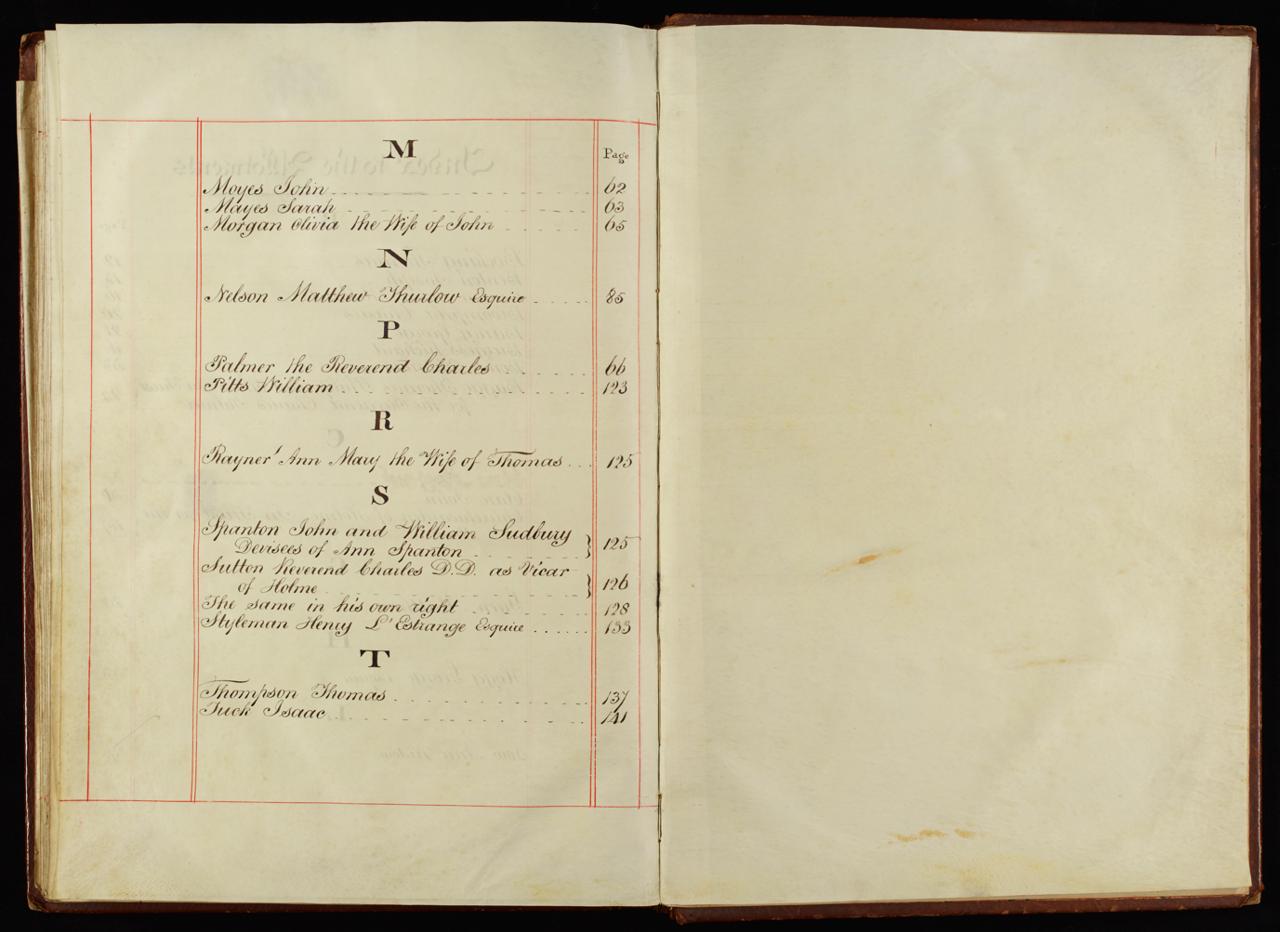 M
Page
Moyes John 62
Mayes Sarah 63
Morgan Olivia the Wife of John 65
N
Nelson Matthew Thurlow Esquire 85
P
Palmer the Reverend Charles 66
Pitts William 123
R
Rayner Ann Mary the Wife of Thomas 125
S
Spanton John and William Sudbury
Devisees of Ann Spanton } 125
Sutton Reverend Charles D.D. as Vicar
of Holme } 126
The same in his own right 128
Styleman Henry L'Estrange Esquire 133
T
Thompson Thomas 137
Tuck Isaac 141